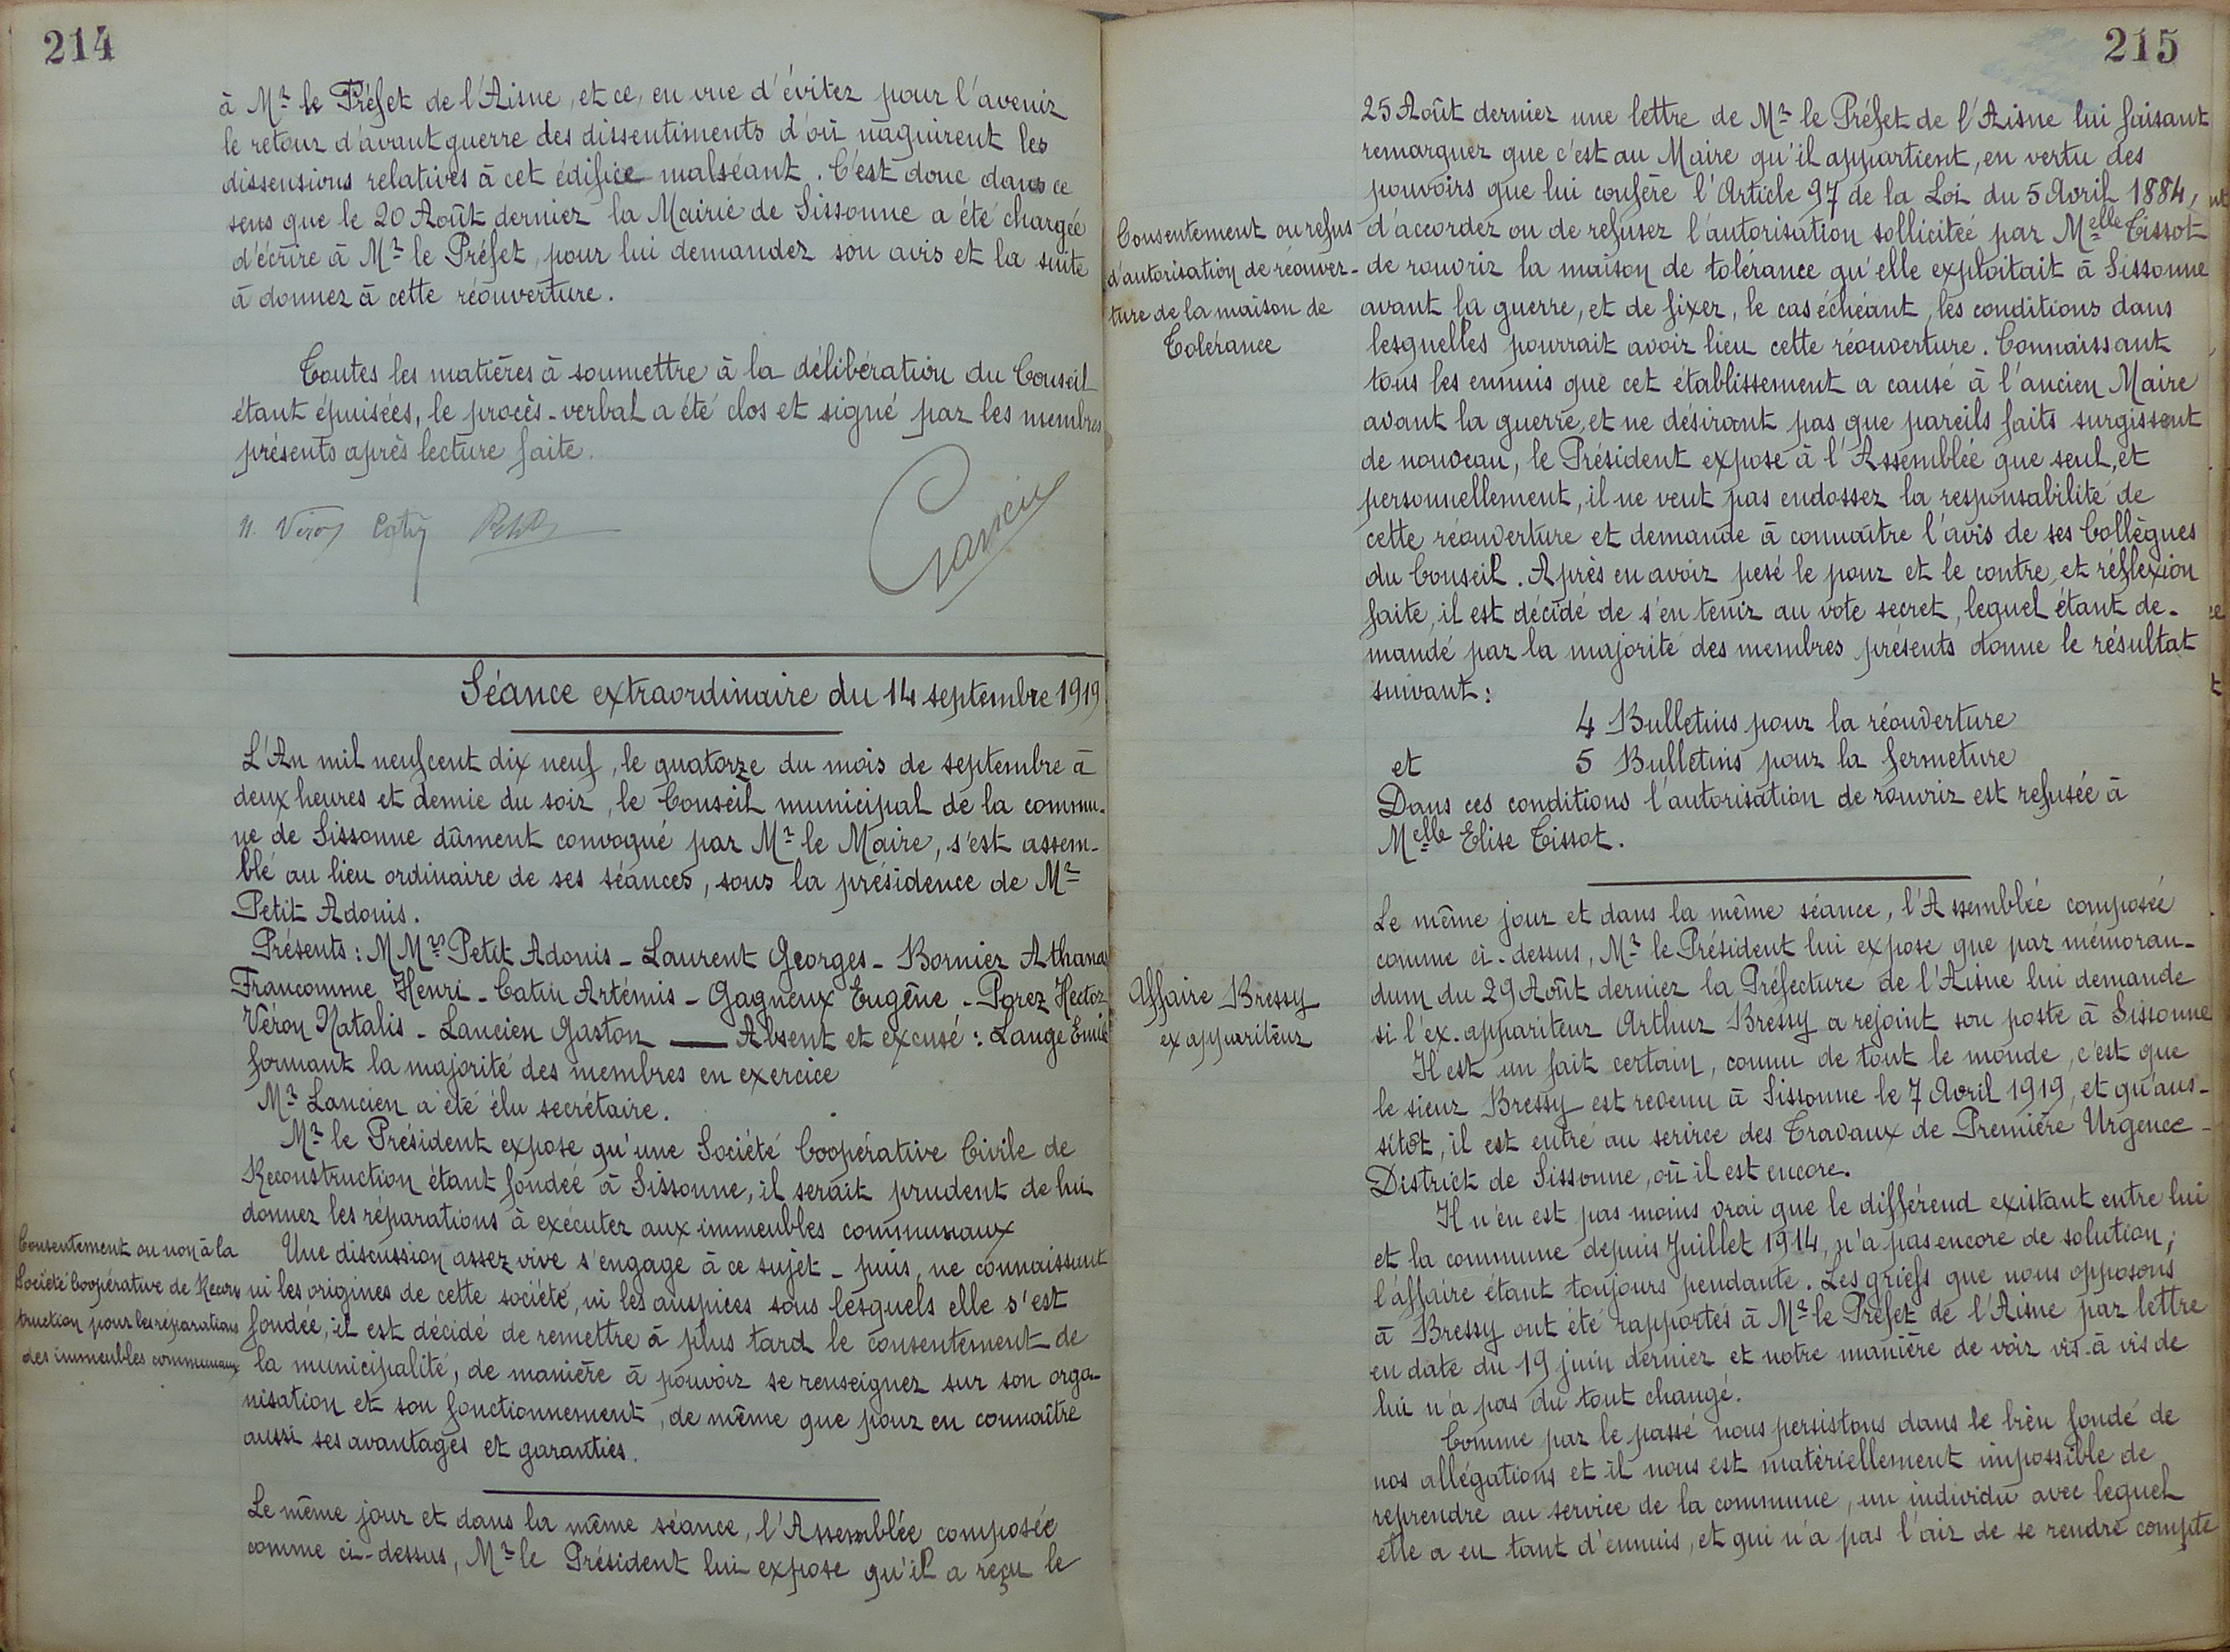 214
à Mr le Préfet de l'Aisne, et ce, en vue d'éviter pour l'avenir
le retour d'avant guerre des dissentiments d'où naquirent les
dissensions relatives à cet édifice malséant. C'est donc dans ce
sens que le 20 Août dernier la Mairie de Sissonne a été chargée
d'écrire à Mr le Préfet, pour lui demander son avis et la suite
à donner à cette réouverture.
Toutes les matières à soumettre à la délibération du Conseil
étant épuisées, le procès-verbal a été clos et signé par les membres
présents après lecture faite.
N. Véron Catin Petit
Lancien
Séance extraordinaire du 14 septembre 1919
L'An mil neuf cent dix neuf, le quatorze du mois de septembre à
deux heures et demie du soir, le Conseil municipal de la commu-
ne de Sissonne dûment convoqué par Mr le Maire, s'est assem-
blé au lieu ordinaire de ses séances, sous la présidence de Mr
Petit Adonis.
Présents : M Mrs Petit Adonis - Laurent Georges - Bornier Athana
Francomme Henri - Catin Artémis - Gagneux Eugène - Porez Hector
Véron Natalis - Lancien Gaston — Absent et excusé : Lange Emile
formant la majorité des membres en exercice
Mr Lancien a été élu secrétaire.
Mr le Président expose qu'une Société Coopérative Civile de
Reconstruction étant fondée à Sissonne, il serait prudent de lui
donner les réparations à exécuter aux immeubles communaux
Consentement ou non à la
Société Coopérative de Recons
truction pour les réparations
des immeubles communaux
Une discussion assez vive s'engage à ce sujet - puis, ne connaissant
ni les origines de cette société, ni les auspices sous lesquels elle s'est
fondée, il est décidé de remettre à plus tard le consentement de
la municipalité, de manière à pouvoir se renseigner sur son orga-
nisation et son fonctionnement, de même que pour en connaître
aussi ses avantages et garanties.
Le même jour et dans la même séance, l'Assemblée composée
comme ci-dessus, Mr le Président lui expose qu'il a reçu le
215
25 Août dernier une lettre de Mr le Préfet de l'Aisne lui faisant
remarquer que c'est au Maire qu'il appartient, en vertu des
pouvoirs que lui confère l'Article 97 de la Loi du 5 Avril 1884,
Consentement ou refus
d'autorisation de réouver-
ture de la maison de
Tolérance
d'accorder ou de refuser l'autorisation sollicitée par Melle Tissot
de rouvrir la maison de tolérance qu'elle exploitait à Sissonne
avant la guerre, et de fixer, le cas échéant, les conditions dans
lesquelles pourrait avoir lieu cette réouverture. Connaissant
tous les ennuis que cet établissement a causé à l'ancien Maire
avant la guerre, et ne désirant pas que pareils faits surgissent
de nouveau, le Président expose à l'Assemblée que seul, et
personnellement, il ne veut pas endosser la responsabilité de
cette réouverture et demande à connaître l'avis de ses Collègues
du Conseil. Après en avoir pesé le pour et le contre, et réflexion
faite, il est décidé de s'en tenir au vote secret, lequel étant de-
mandé par la majorité des membres présents donne le résultat
suivant :
4 Bulletins pour la réouverture
et 5 Bulletins pour la fermeture
Dans ces conditions l'autorisation de rouvrir est refusée à
Melle Elise Tissot.
Le même jour et dans la même séance, l'Assemblée composée
comme ci-dessus, Mr le Président lui expose que par mémoran-
Affaire Bressy
ex appariteur
dum du 29 Août dernier la Préfecture de l'Aisne lui demande
si l'ex-appariteur Arthur Bressy a rejoint son poste à Sissonne
Il est un fait certain, connu de tout le monde, c'est que
le sieur Bressy est revenu à Sissonne le 7 Avril 1919, et qu'aus-
sitôt, il est entré au serirce des Travaux de Première Urgence -
District de Sissonne, où il est encore.
Il n'en est pas moins vrai que le différend existant entre lui
et la commune depuis Juillet 1914, n'a pas encore de solution ;
l'affaire étant toujours pendante. Les griefs que nous opposons
à Bressy ont été rapportés à Mr le Préfet de l'Aisne par lettre
en date du 19 juin dernier et notre manière de voir vis-à vis de
lui n'a pas du tout changé.
Comme par le passé nous persistons dans le bien fondé de
nos allégations et il nous est matériellement impossible de
reprendre au service de la commune, un individu avec lequel
elle a eu tant d'ennuis, et qui n'a pas l'air de se rendre compte